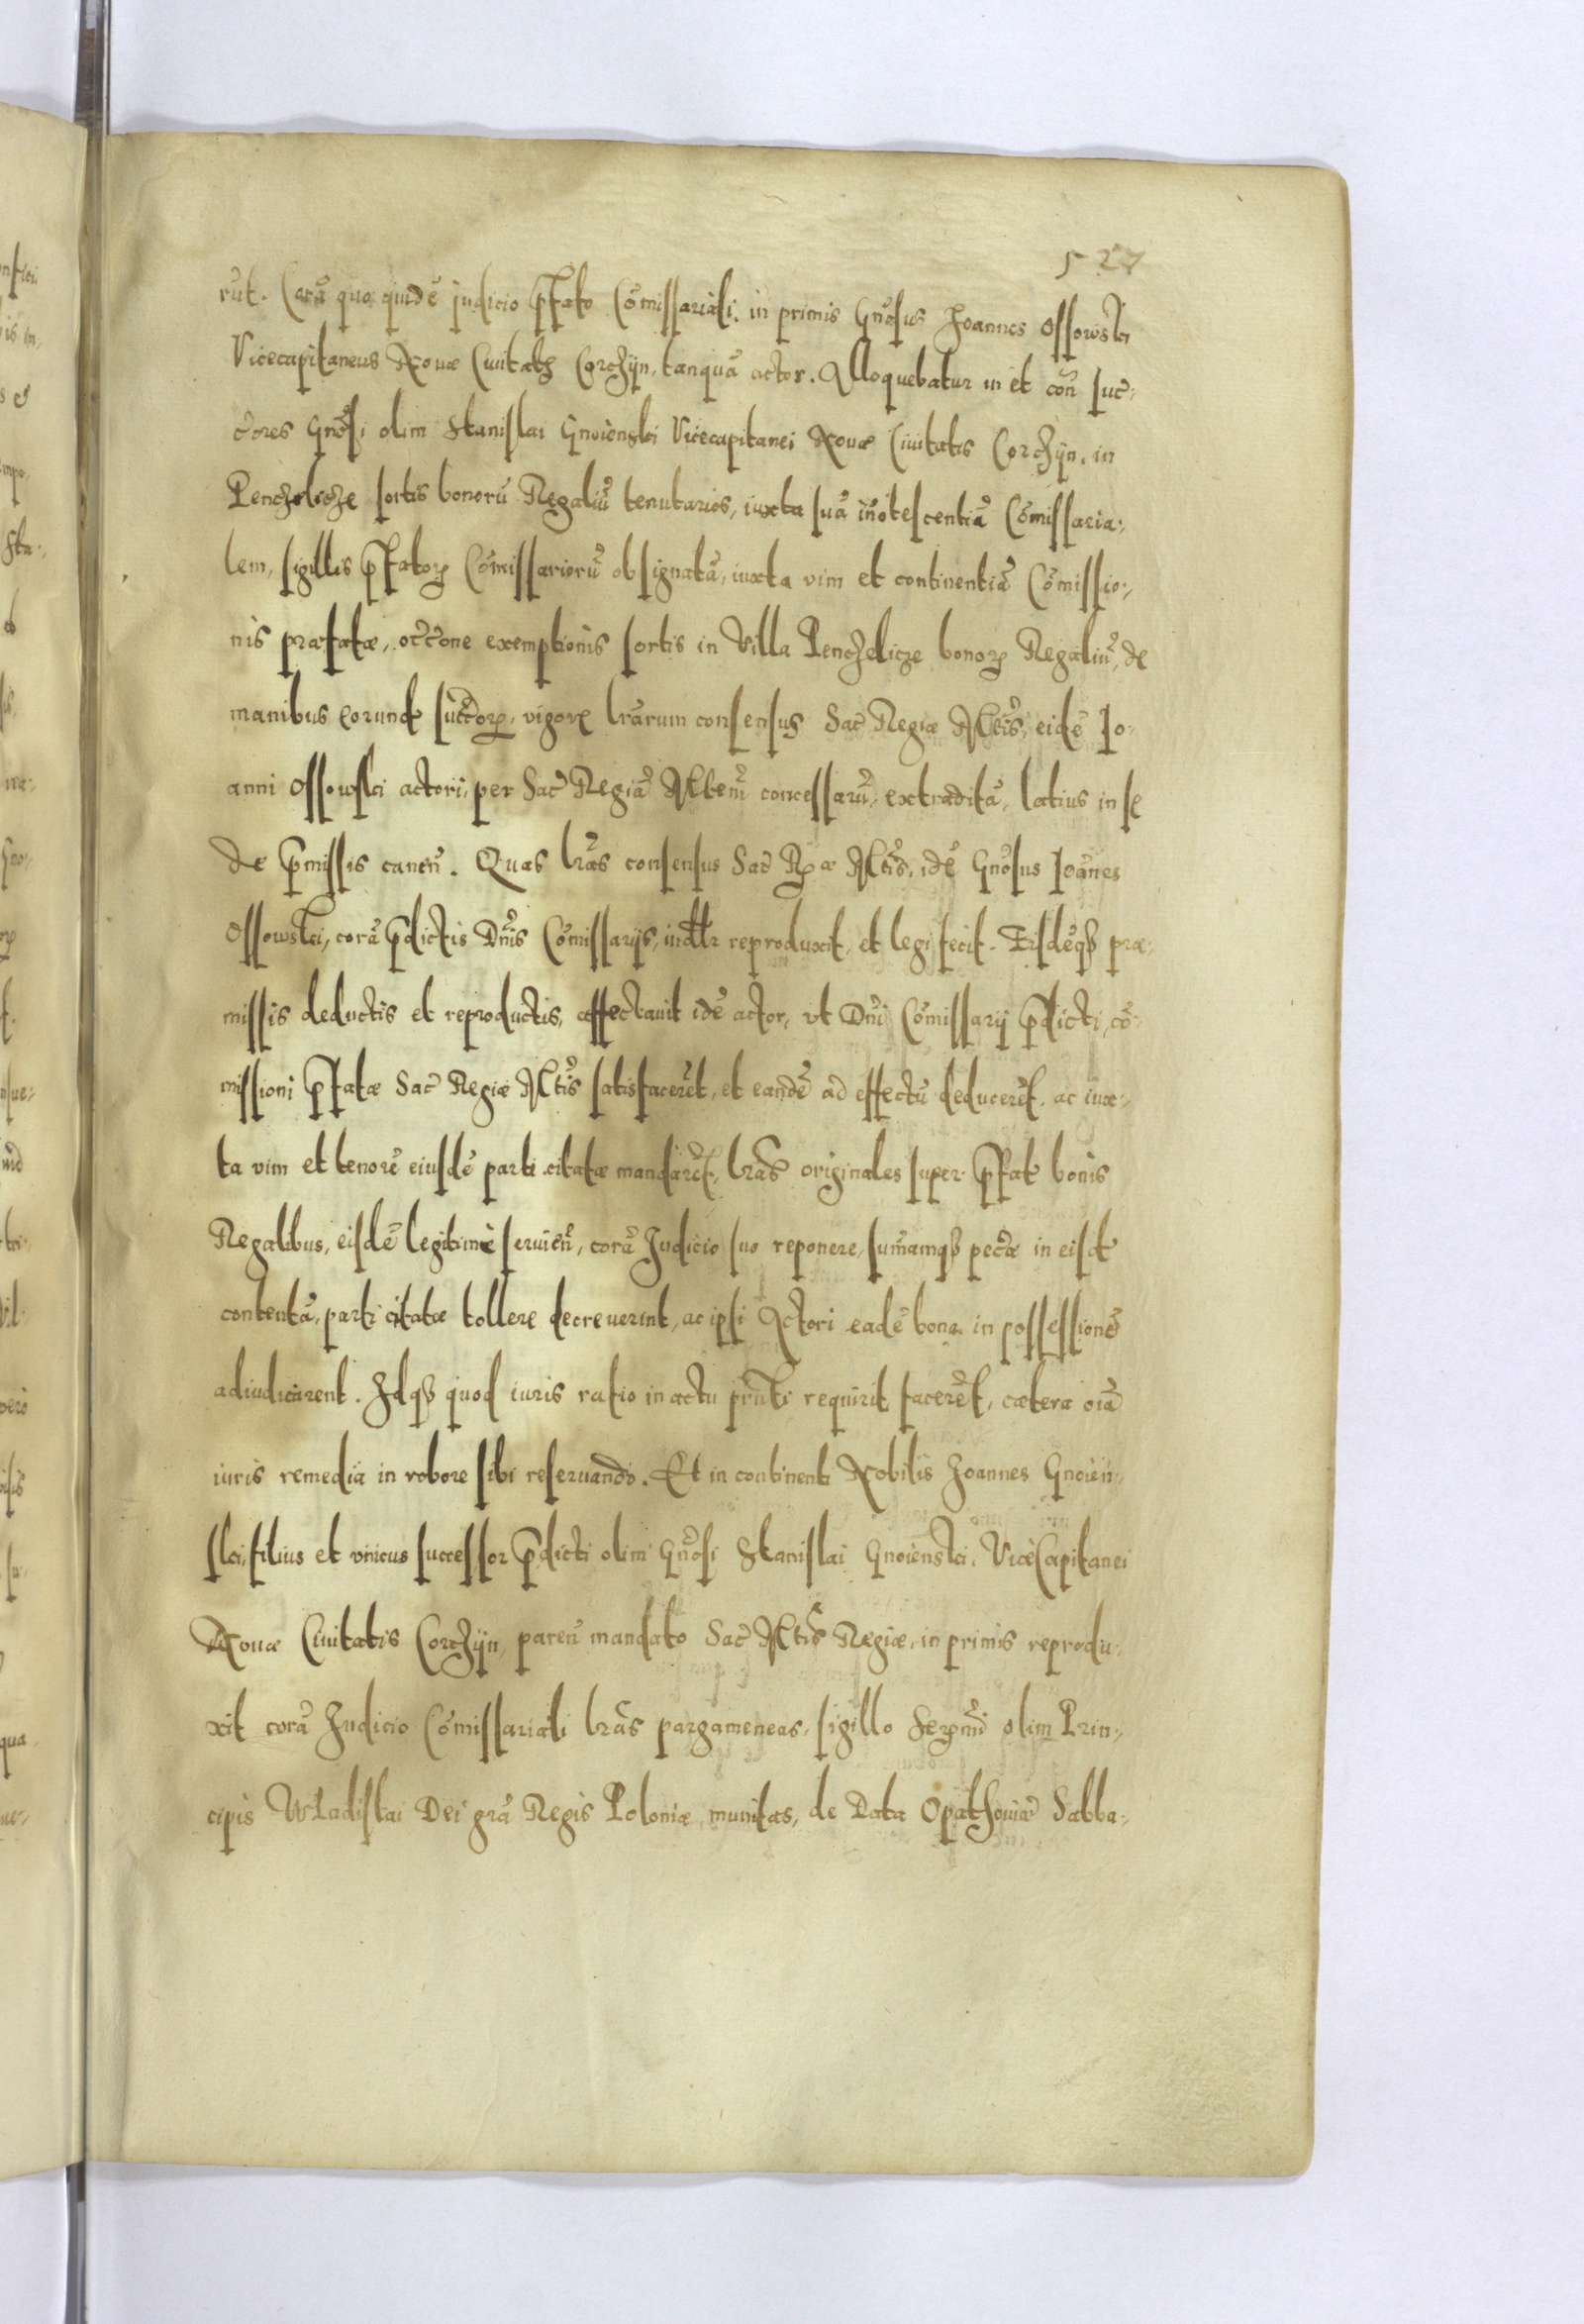 527
rũt. Corã quo quidẽ judicio p̃fato Cõmissariali, in primis Gnõsus Joannes Ossowski
Vicecapitaneus Nouæ Ciuitatis Corchÿn, tanquã actor. Alloquebatur in et coñ suc-
c̃ores Gnõsi olim Stanislai Gnoienski Vicecapitanei Nouæ Ciuitatis Corchÿn, in
Penchelicze sortis bonorũ Regaliũ tenutarios, iuxta suã iñotescentiã Cõmissaria-
lem, sigillis p̃fatorꝝ Cõmissariorũ obsignatã, iuxta vim et continentiã Cõmissio-
nis præfatæ, occ̃one exemptionis sortis in Villa Penchelicze bonorꝝ Regaliũ, de
manibus eorund succ̃orꝝ, vigore lr̃arum consensus Sac̃ Regiæ Mtis̃, eidẽ Jo-
anni Ossowski actori, per Sac̃ Regiã Mtem̃ concessarũ, extraditã, latius in se
de p̃missis caneñ. Quas lr̃as consensus Sac̃ Rꝝæ Mtis̃, idẽ Gnõsus Joãnes
Ossowski, corã p̃dictis Dñis Cõmissarijs, indllr reproduxit, et legi fecit. Eisdẽqꝫ præ-
missis deductis et reproductis, affectauit idẽ actor, vt Dñi Cõmissarij p̃dicti, cõ-
missioni p̃fatæ Sac̃ Regiæ Mtis̃ satisfacerẽt, et eandẽ ad effectũ deducerẽt, ac iux-
ta vim et tenorẽ eiusdẽ parti citatæ mandarẽt, lr̃as originales super p̃fat bonis
Regalibus, eisdẽ legitimè seruieñ, corã Judicio suo reponere, sum̃amqꝫ pec̃æ in eisd
contentã, parti citatæ tollere decreuerint, ac ipsi Actori eadẽ bona in possessionẽ
adiudicarent. Idqꝫ quod iuris ratio in actu pñti requirit facerẽt, cætera oĩa
iuris remedia in robore sibi reseruando. Et in continenti Nobilis Joannes Gnoien-
ski, filius et vnicus successor p̃dicti olim Gnõsi Stanislai Gnoienski, ViceCapitanei
Nouæ Ciuitatis Corchÿn, pareñ mandato Sac̃ Mtis̃ Regiæ, in primis reprodu-
xit corã Judicio Cõmissariali lr̃as pargameneas, sigillo Serꝝmi olim Prin-
cipis Wladislai Dei grã Regis Poloniæ munitas, de Data Opathouiæ Sabba-